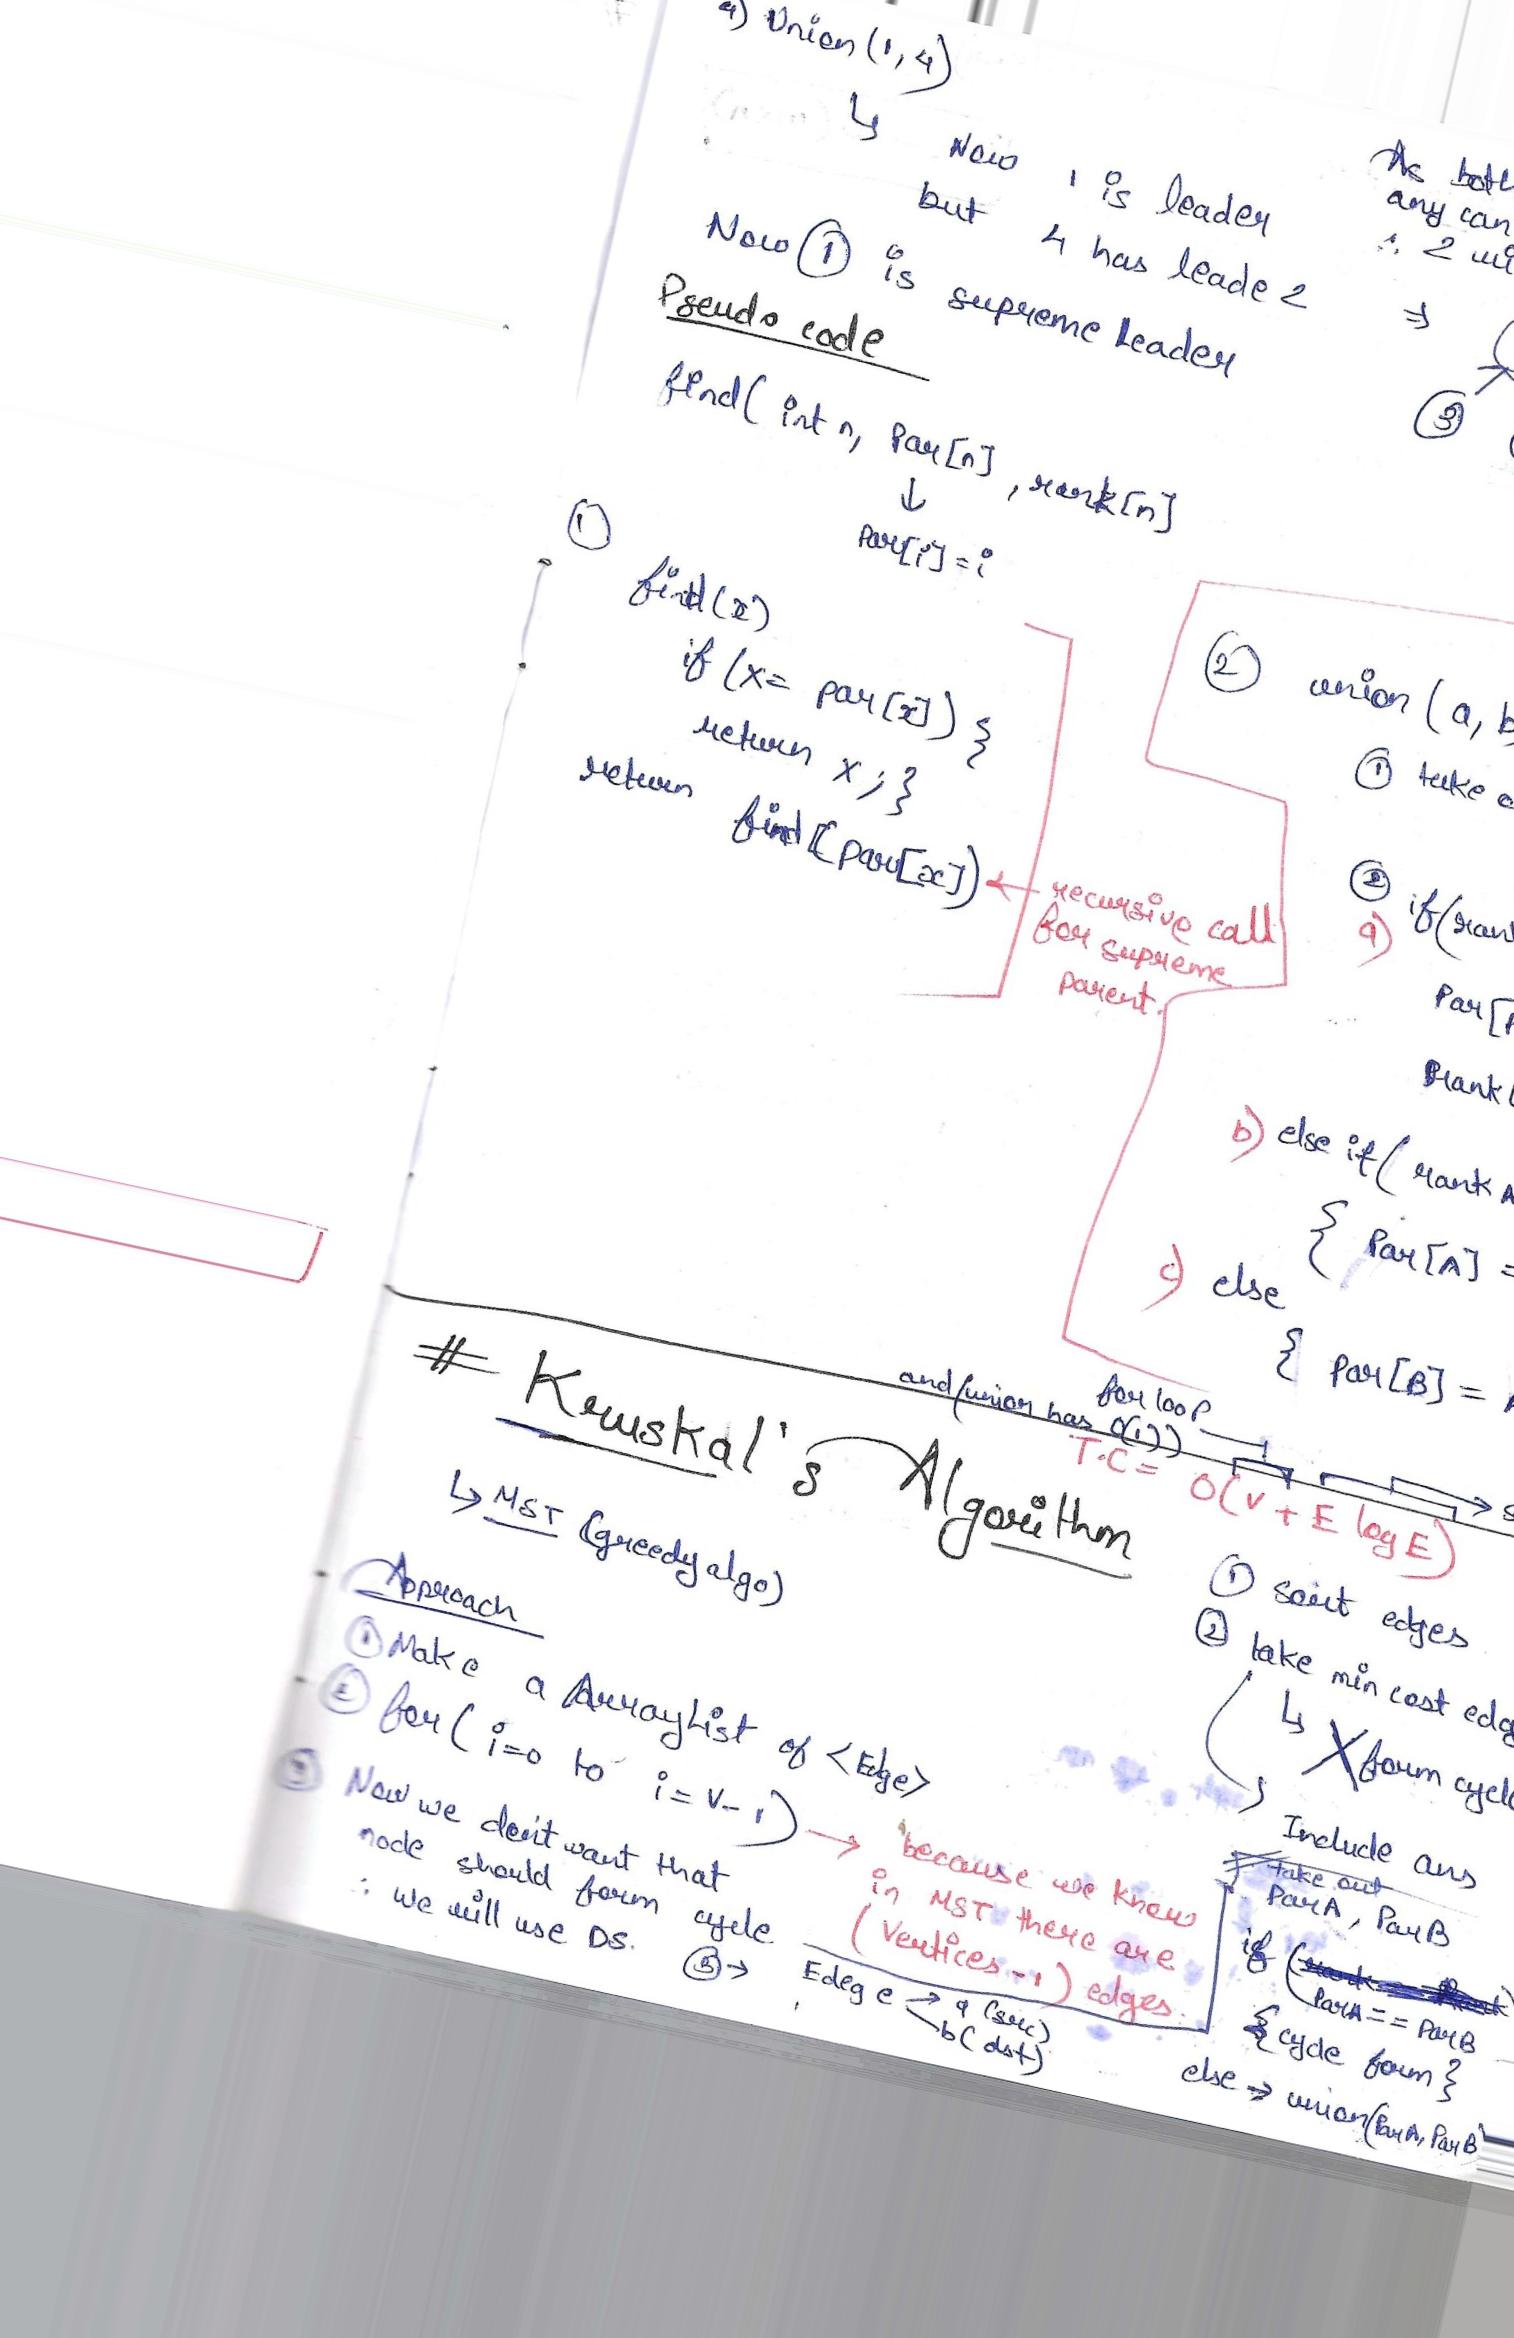 4) Union (1, 4)
↳ Now 1 is leader
but 4 has leade 2
Now ① is supreme Leader
As both
any can
∴ 2
⇒
③
Pseudo code
find( int n, Par[n], rank[n]
↓
Par[i] = i
①
find(x)
if (x= par[x]) {
return x ; }
return
find (par[x])
← recursive call
for supreme
parent.
② union (a, b
① take
② if(rank
a)
Par[
Rank(
b) else if( rank A
{ Par[A] =
c) else
{ Par[B] =
# Kruskal's Algorithm
and(union has O(1))
for loop
T.C = O( V + E log E)
↳ MST (greedy algo)
Approach
① Make a ArrayList of <Edge>
② for( i=0 to i = V-1) → because we know
in MST there are
(Vertices -1) edges.
③ Now we don't want that
node should form cycle
∴ we will use DS.
③→ Edeg e
a (src)
b( dst)
① sort edges
② take min cost edg
↳ X form cycle
Include ans
take out
ParA, ParB
if (
ParA == ParB
{cycle form}
else → union(ParA, ParB